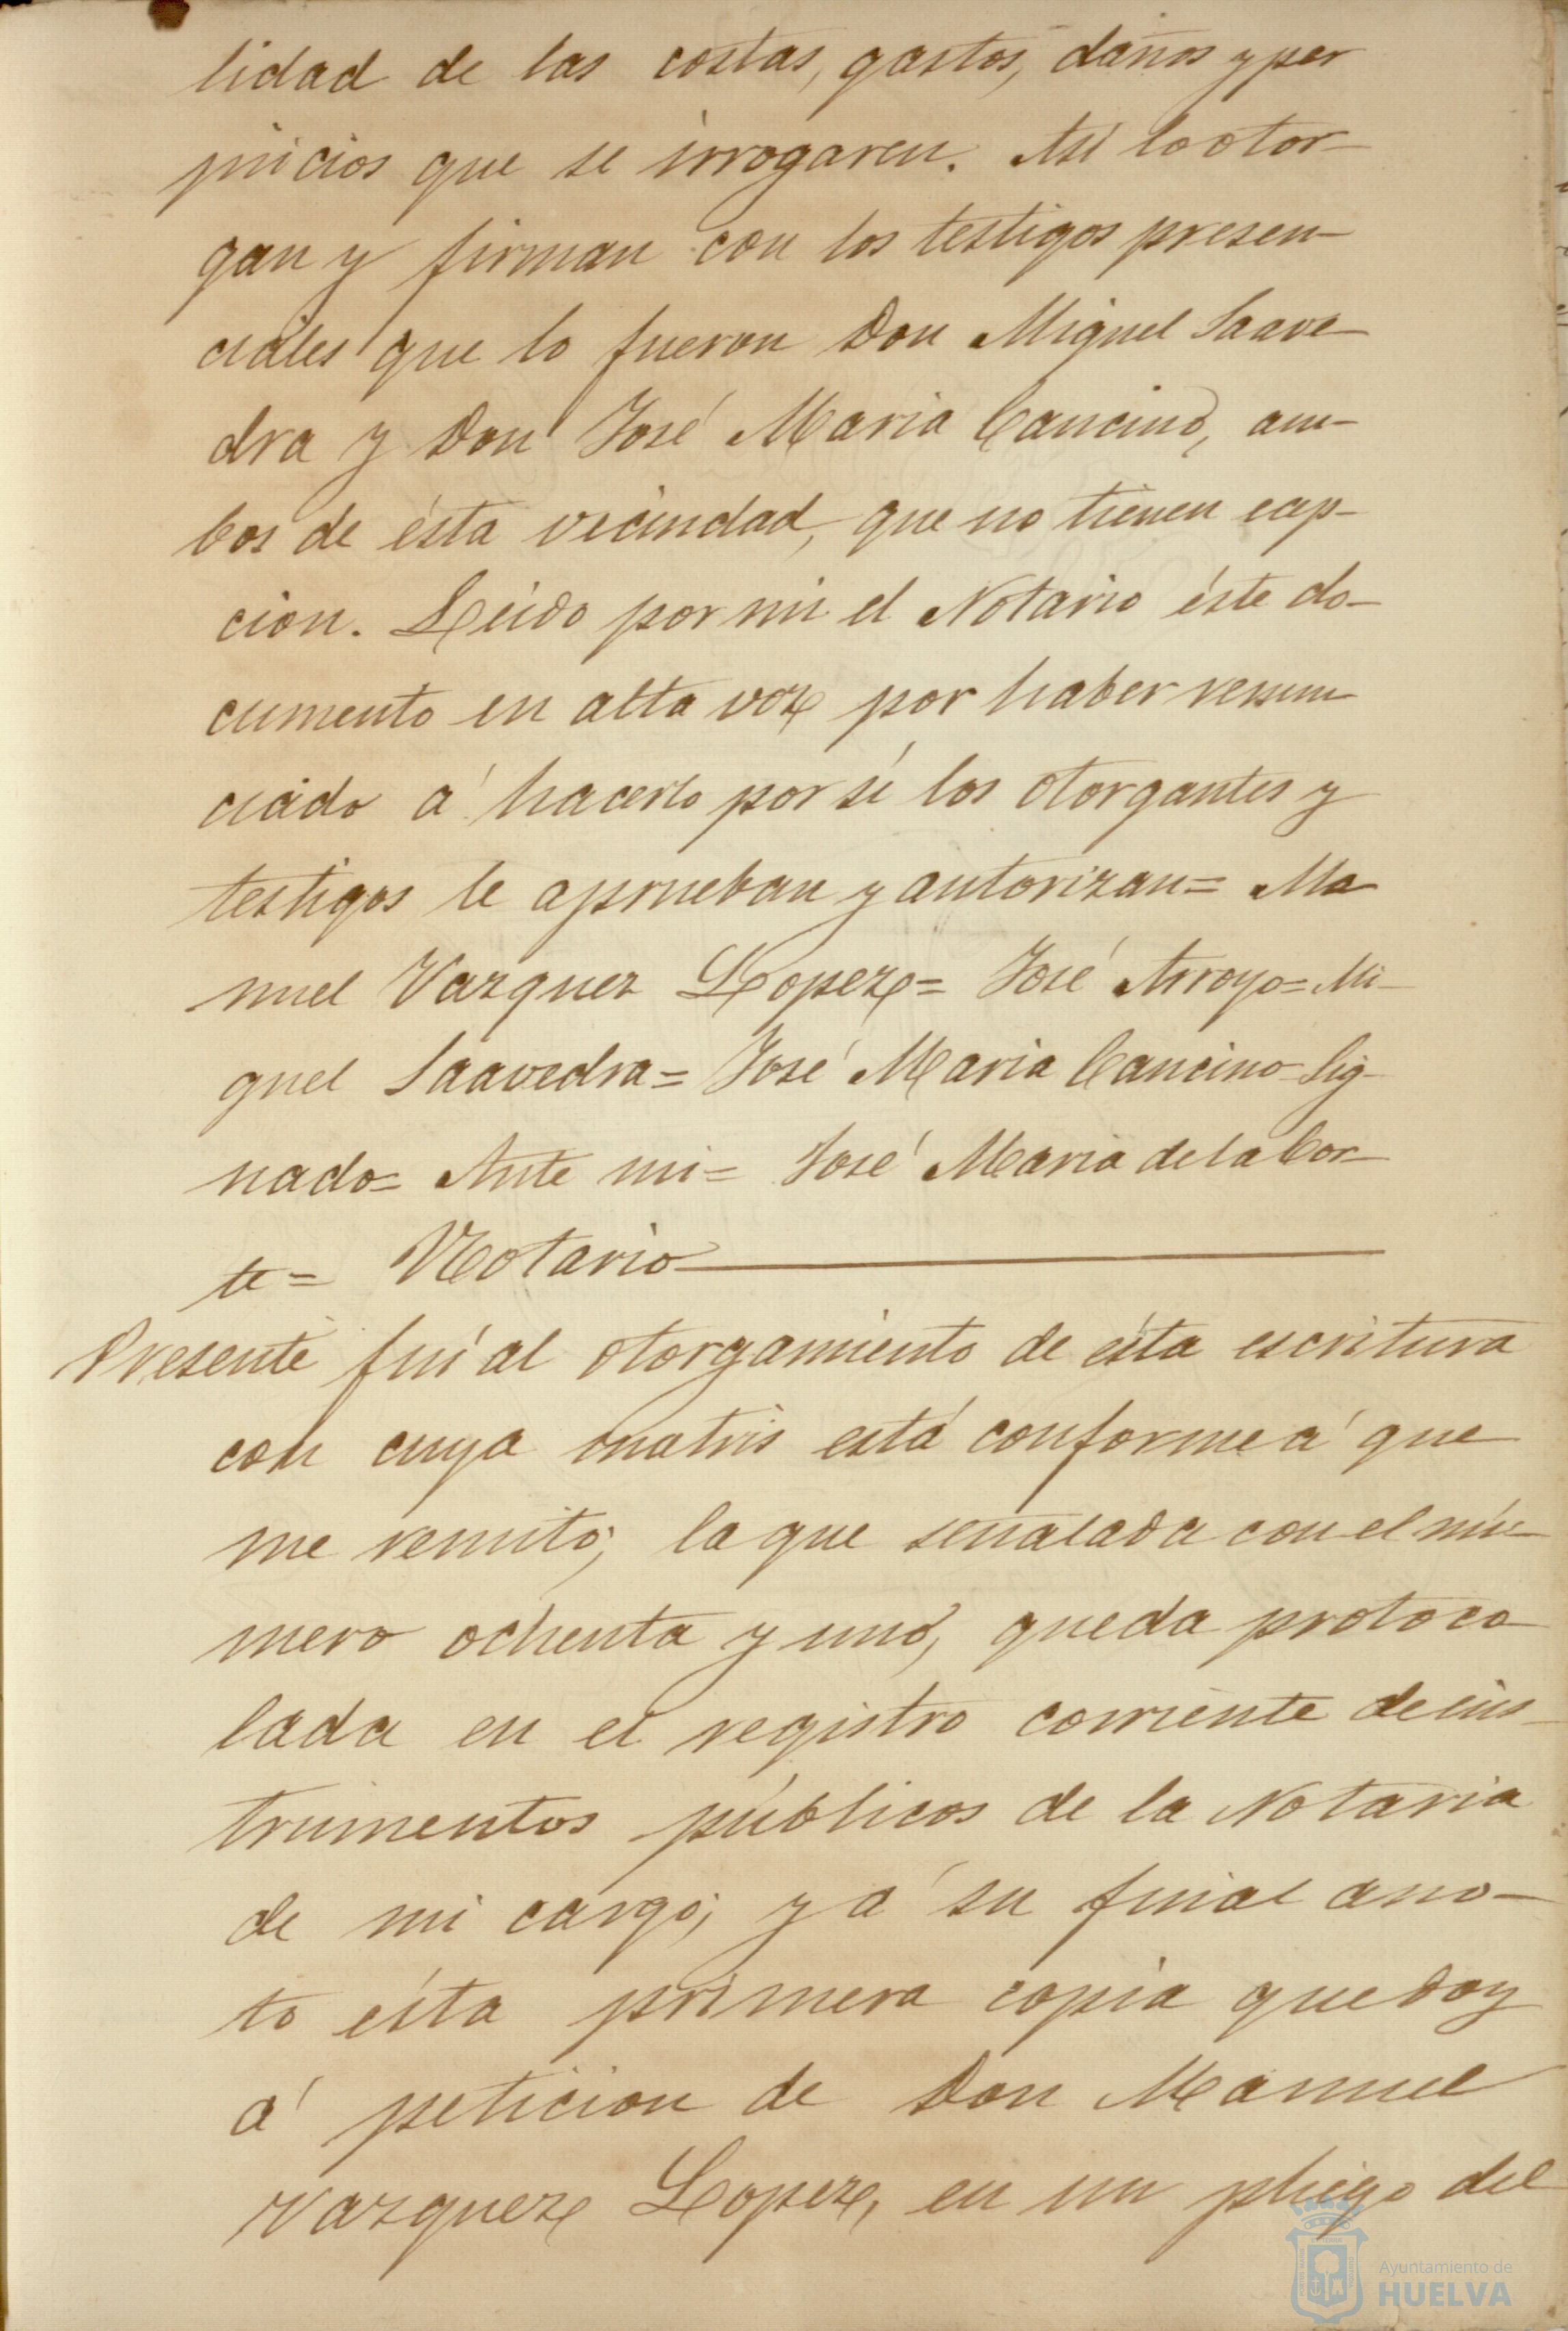 lidad de las costas, gastos, daños y per
juicios que se irrogaren. Asi lo otor-
gan y firman con los testigos presen-
ciales que lo fueron Don Miguel Saave-
dra y Don José Maria Cancino, am-
bos de ésta vecindad, que no tienen ecep-
cion. Leido por mi el Notario éste do-
cumento en alta voz por haber renun-
ciado á hacerlo por sí los otorgantes y
testigos le aprueban y autorizan= Ma-
nuel Vazquez Lopez= José Arroyo= Mi-
guel Saavedra= José Maria Cancino= Sig-
nado= Ante mi= José Maria de la Cor-
te= Notario
Presente fuí al otorgamiento de ésta escritura
con cuya matris está conforme á que
me remito; la que señalada con el nú-
mero ochenta y uno, queda protoco-
lada en el registro corriente de ins-
trumentos públicos de la Notaria
de mi cargo; y á su final ano-
to ésta primera copia que doy
á peticion de Don Manuel
Vazquez Lopez, en un pliego del
Ayuntamiento de
HUELVA